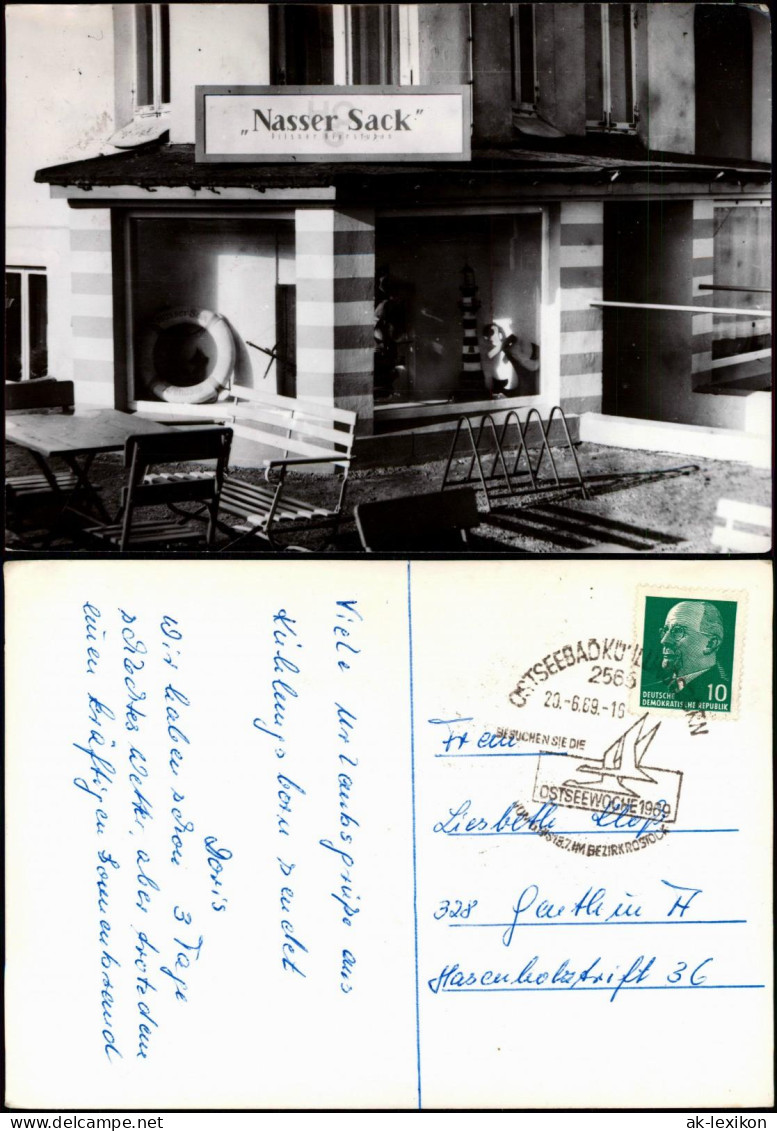 „Nasser Sack"
Pilsner Bierstuben
Viele Urlaubsgrüße aus
Kühlungsborn sendet
Doris
Wir haben schon 3 Tage
schlechtes Wetter, aber trotzdem
einen kräftigen Sonnenbrand
OSTSEEBAD KÜHLUNGSBORN
2565
20.-6.69.-16
BESUCHEN SIE DIE
OSTSEEWOCHE 1969
IM BEZIRK ROSTOCK
10
DEUTSCHE
DEMOKRATISCHE REPUBLIK
Frau
Liesbeth
328 Genthin
Hasenholztrift 36
ak-lexikon